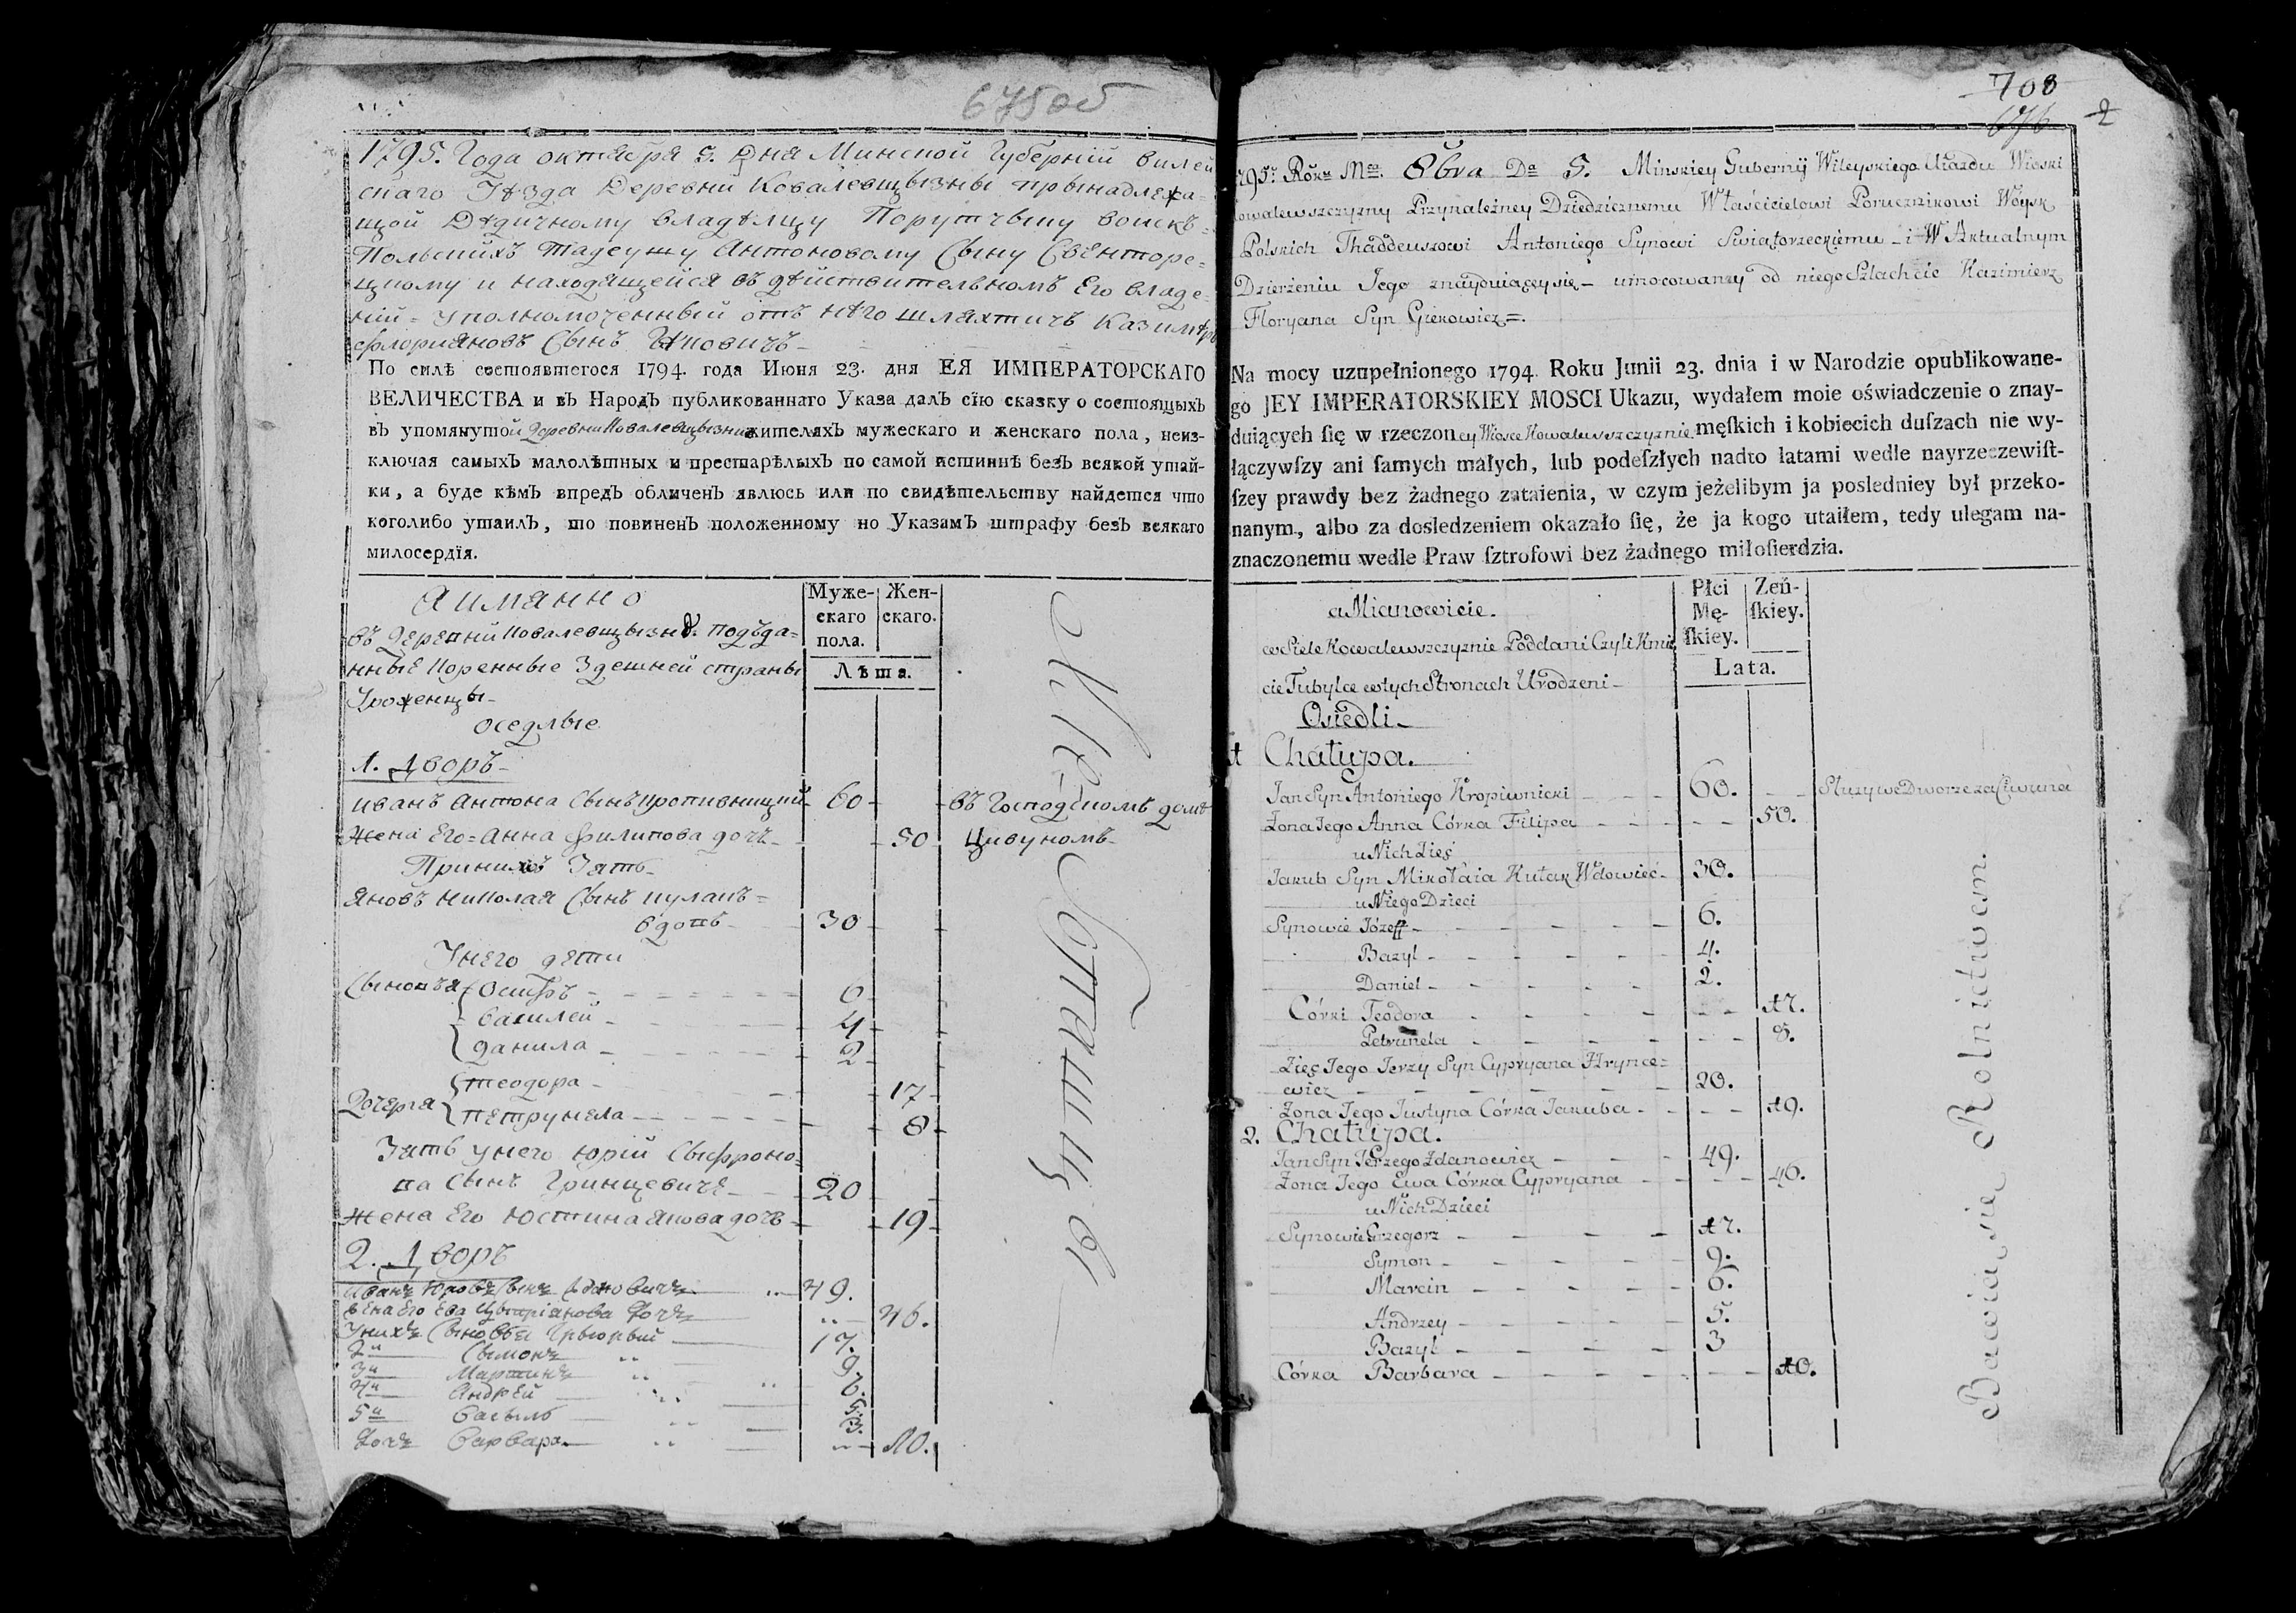 675об
1795. Года октября 5. Дня Минской Губерніи вилей
скаго Уѣзда Деревни Ковалевщызны прынадлежа-
щой Дѣдичному владѣлцу Порутчыку воискъ
Польскихъ Тадеушу Антоновому Сыну Свѣнторе-
цкому и находящейся въ дѣйствительномъ Его владе-
ніи - уполномоченный отъ нѣго шляхтичъ Казимѣръ
Флорияновъ Сынъ
По силѣ состоявшегося 1794. года Июня 23. дня ЕЯ ИМПЕРАТОРСКАГО
ВЕЛИЧЕСТВА и въ Народъ публикованнаго Указа далъ сїю сказку о состоящыхъ
въ упомянутой Деревни Ковалевщызни жителяхъ мужескаго и женскаго пола, неиз-
ключая самыхъ малолѣтныхъ и престарѣлыхъ по самой истиннѣ безъ всякой утай-
ки, а буде кѣмъ впредь обличенъ явлюсь или по свидѣтельству найдется что
коголибо утаилъ, то повиненъ положенному по Указамъ штрафу безъ всякаго
милосердїя.
Аимянно
Муже-скаго пола. Жен-скаго.
въ Деревни Ковалевщызнѣ подъда-
нные Коренные Здешней страны
Уроженцы-
Лѣта.
оседлые
1. Дворъ-
иванъ Антона Сынъ кропивницкий 60 въ Господскомъ доме
Жена Его=Анна филипова дочь 50 Цивуномъ
Принихъ Зять-
Яковъ николая Сынъ кулакъ=
вдовъ 30
Унего дети
Сыновья Осифъ 6
василей 4
данила 2
Дочеря теодора 17
петрунела 8
Зять унего юрій
Сынъ Гринцевичъ 20
Жена Его Юстина якова дочь 19
2. Дворъ
Иванъ Юровъ Сынъ Ждановичъ 49.
жена Его Ева Цыпріянова Дочь 46.
Унихъ Сыновьи Грыгорый 17.
2й Сымонъ 9.
3й Мартинъ 6.
4й Андрей 5.
5й васыль 3.
Дочь варвара 10.
708
676
2
1795. Roku Mca. 8bra Da 5. Minskiey Gubernij Wileyskiego Uiazdu Wioski
Kowalewszczyzny Przynależney Dziedzicznemu Właścicielowi Porucznikowi Woysk
Polskich Thaddeuszowi Antoniego Synowi Swiatorzeckiemu - i W Aktualnym
Dzierżeniu Jego znayduiącey się - umocowanzy od niego Szlachcic Kazimierz
Floryana Syn Giekowicz=.
Na mocy uzupełnionego 1794. Roku Junii 23. dnia i w Narodzie opublikowane-
go JEY IMPERATORSKIEY MOSCI Ukazu, wydałem moie oświadczenie o znay-
duiących ſię w rzeczoney Wiosce Kowalewszczyznie męſkich i kobiecich duſzach nie wy-
łączywſzy ani ſamych małych, lub podeſzłych nadto latami wedle nayrzeczewiſt-
ſzey prawdy bez żadnego zataienia, w czym jeżelibym ja posledniey był przeko-
nanym, albo za dosledzeniem okazało ſię, że ja kogo utaiłem, tedy ulegam na-
znaczonemu wedle Praw ſztrofowi bez żadnego miłoſierdzia.
a Mianowicie.
Płci Mę-ſkiey. Zeń-ſkiey.
w Siele Kowalewszczyznie Poddani Czyli Kmie
cie Tubylce w tych Stronach Urodzeni
Lata.
Osiedli
1 Chałupa.
Jan Syn Antoniego Kropiwnicki 60. Służy we Dworze za Ciwuna
Zona Jego Anna Córka Filipa 50.
u Nich Zięć
Jakub Syn Mikołaia Kułak Wdowiec 30.
u Niego Dzieci
Synowie Józeff 6.
Bazyl 4.
Daniel 2.
Córki Teodora 17.
Petrunela 8.
Zięć Jego Jerzy Syn Cypryana Hrynce=
wicz 20.
Zona Jego Justyna Córka Jakuba 19.
2. Chałupa.
Jan Syn Jerzego Zdanowicz 49.
Zona Jego Ewa Córka Cypryana 46.
u Nich Dzieci
Synowie Grzegorz 17.
Symon 9.
Marcin 6.
Andrzey 5.
Bazyl 3
Córka Barbara 10.
Bawia się Rolnictwem.